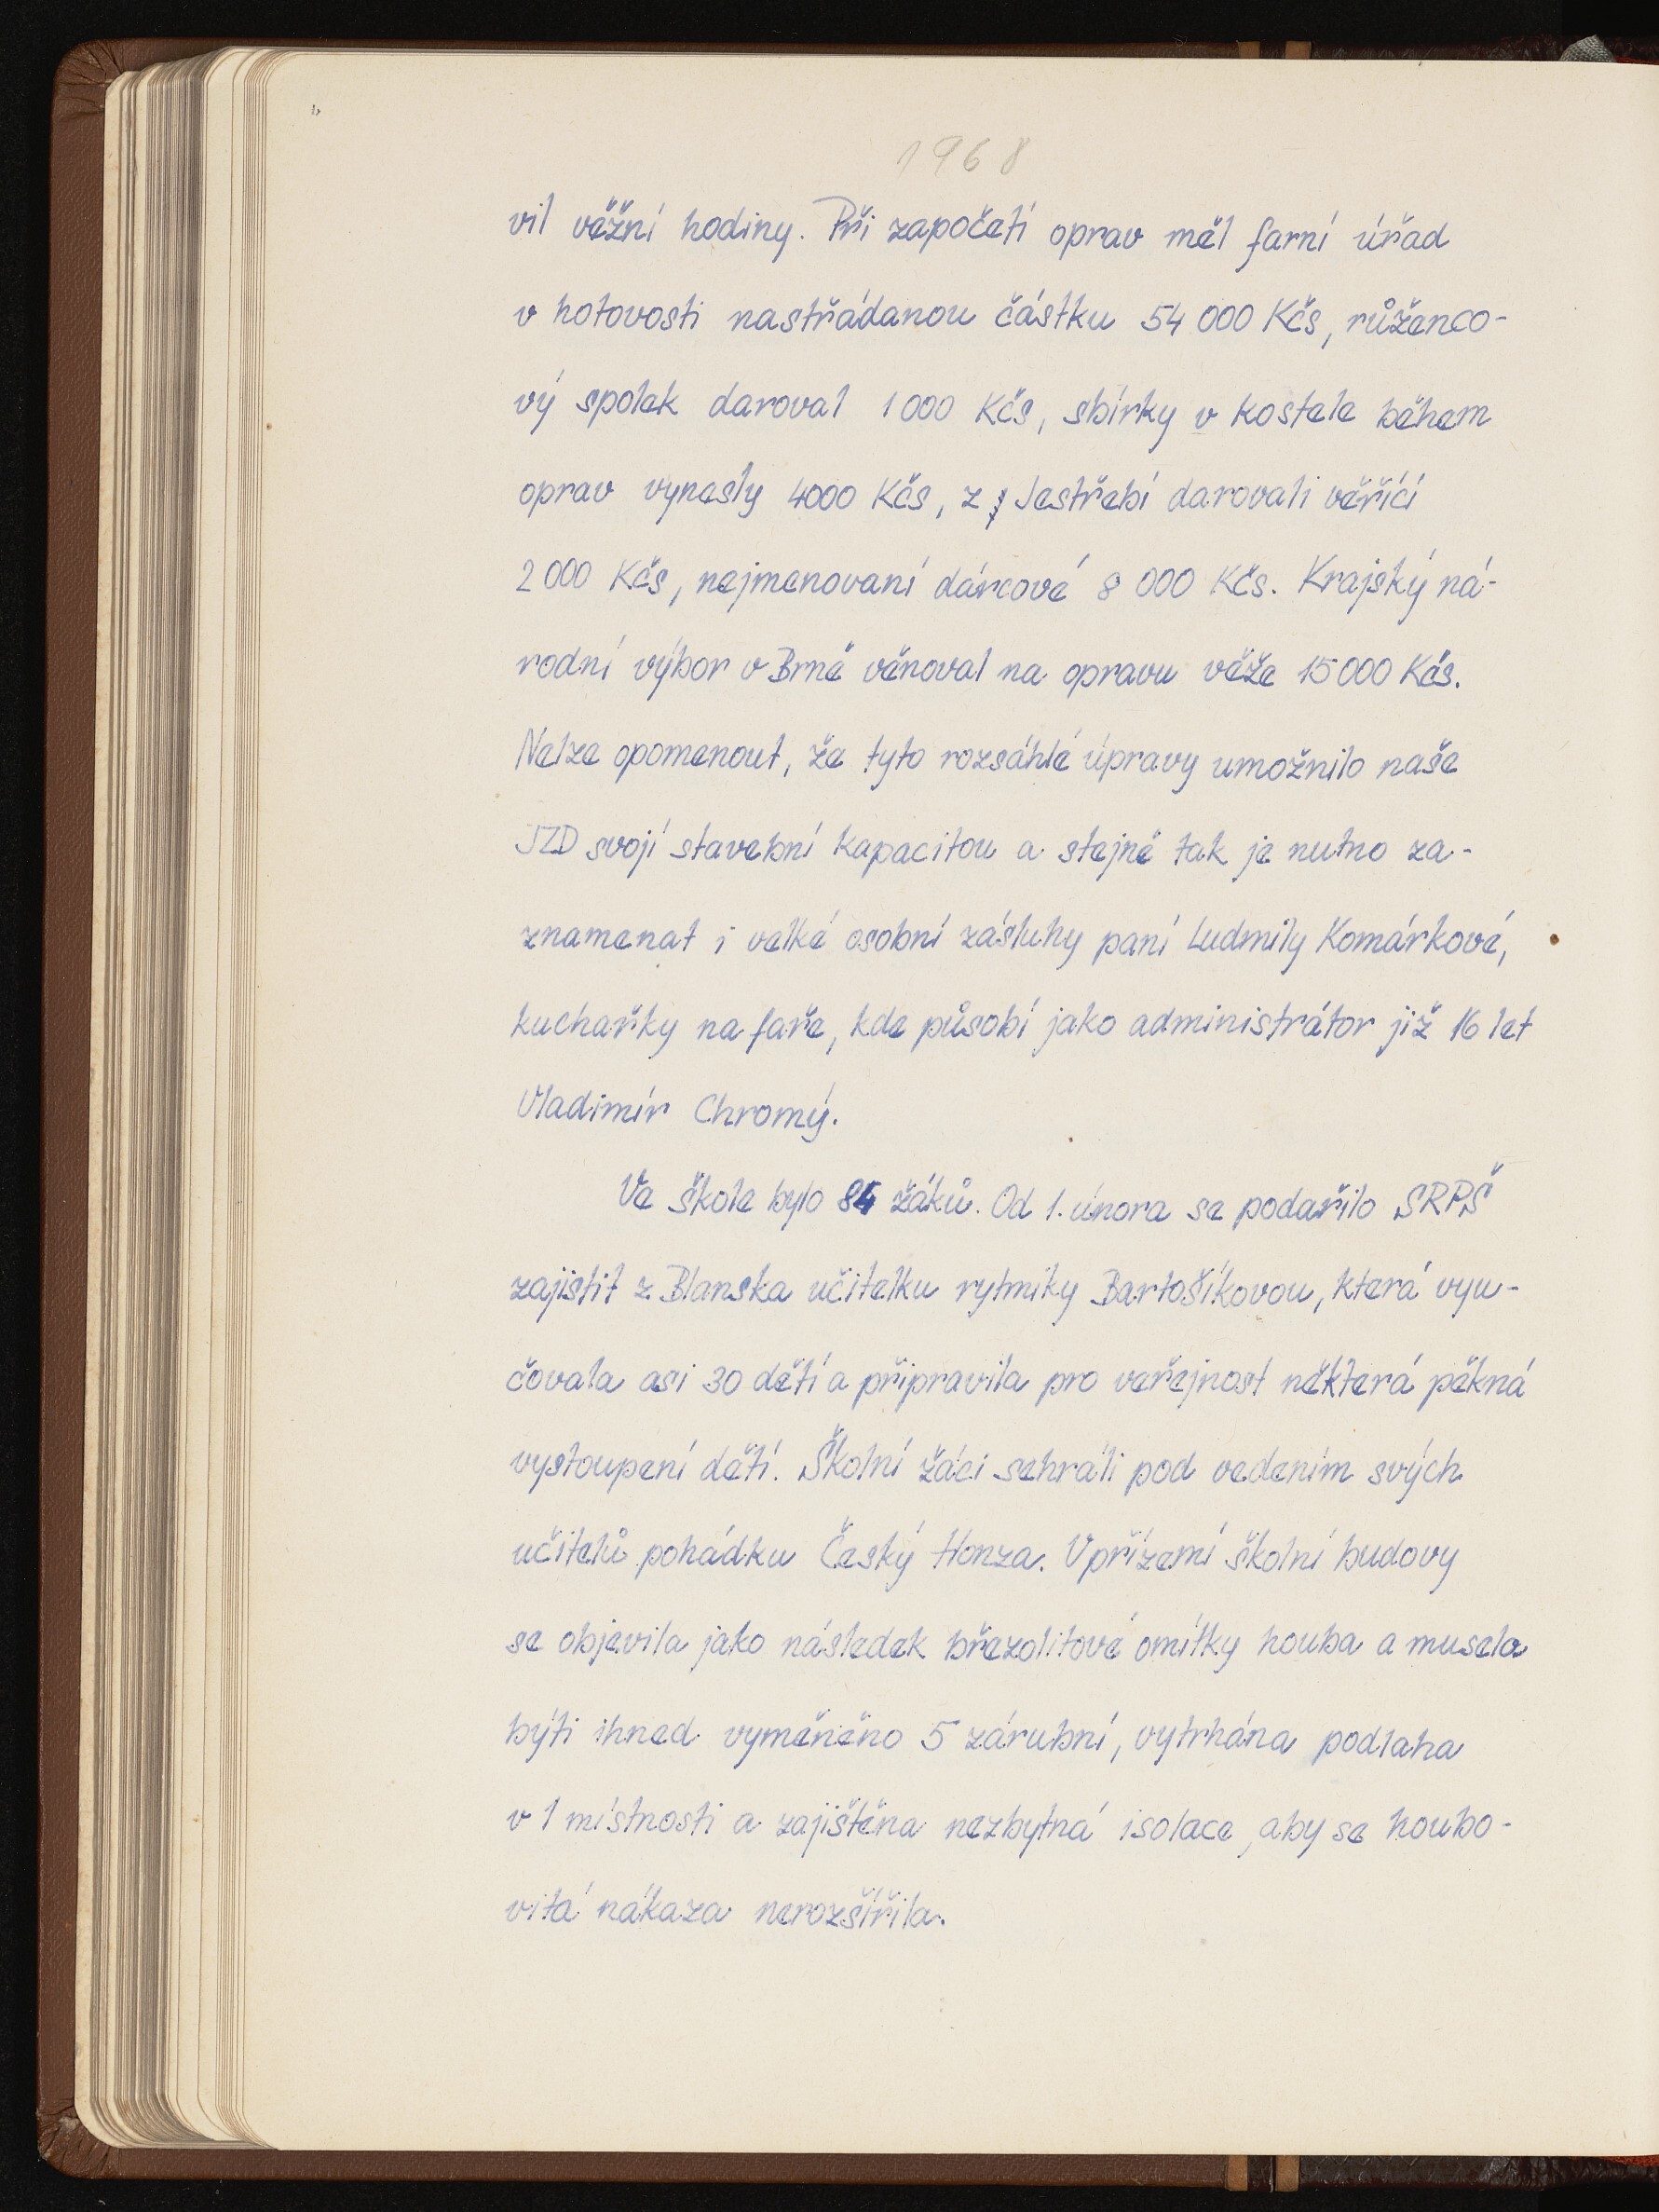 1968
vil věžní hodiny. Při započetí oprav měl farní úřad
v hotovosti nastřádanou částku 54 000 Kčs, růženco-
vý spolek daroval 1 000 Kčs, sbírky v kostele během
oprav vynesly 4000 Kčs, z Jestřebí darovali věřící
2 000 Kčs, nejmenovaní dárcové 8 000 Kčs. Krajský ná-
rodní výbor v Brně věnoval na opravu věže 15 000 Kčs.
Nelze opomenout, že tyto rozsáhlé úpravy umožnilo naše
JZD svojí stavební kapacitou a stejně tak je nutno za-
znamenat i velké osobní zásluhy paní Ludmily Komárkové,
kuchařky na faře, kde působí jako administrátor již 16 let
Vladimír Chromý.
Ve škole bylo 84 žáků. Od 1. února se podařilo SRPŠ
zajistit z Blanska učitelku rytmiky Bartošíkovou, která vyu-
čovala asi 30 dětí a připravila pro veřejnost některá pěkná
vystoupení dětí. Školní žáci sehráli pod vedením svých
učitelů pohádku Český Honza. V přízemí školní budovy
se objevila jako následek břizolitové omítky houba a muselo
býti ihned vyměněno 5 zárubní, vytrhána podlaha
v 1 místnosti a zajištěna nezbytná isolace, aby se houbo-
vitá nákaza nerozšířila.